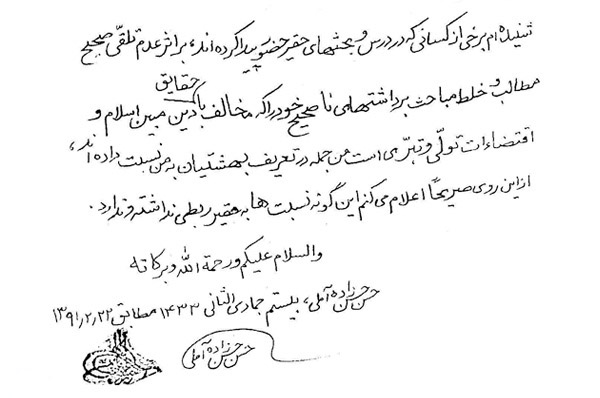 شنیده‌ام برخی از کسانی که در درس و بحثهای حقیر حضور پیدا کرده‌اند، بر اثر عدم تلقّی صحیح
مطالب و خلط مباحث برداشتهای ناصحیح خود را که مخالف با حقایق دین مبین اسلام و
اقتضاءات تولّی و تبرّی است من جمله در تعریف بهشتیان به من نسبت داده‌اند،
از این روی صریحاً اعلام می‌کنم این گونه نسبت‌ها به حقیر ربطی نداشته و ندارد.
والسلام علیکم ورحمة الله وبرکاته
حسن حسن زاده آملی، بیستم جمادی الثانی ۱۴۳۳ مطابق ۱۳۹۱٫۲٫۲۲
حسن حسن زاده آملی